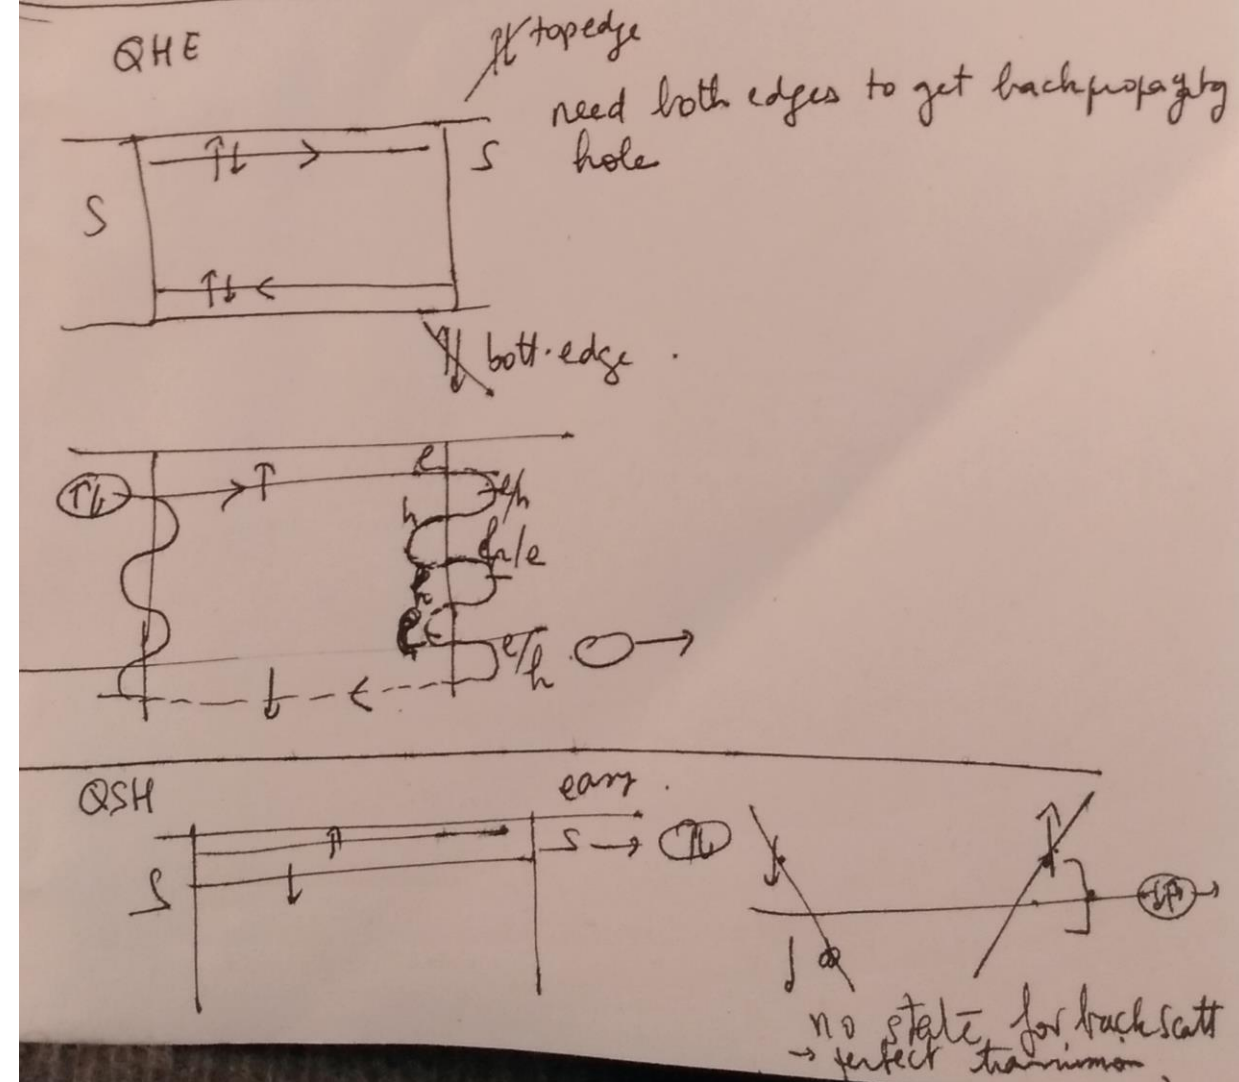 QHE
↑↓ top edge
need both edges to get backpropagtg
hole
↑↓ >
S
S
↑↓ <
↑↓ bott. edge.
↑↓
↑
e
e/h
h
h/e
e/h
↓ <
QSH
easy.
↑
S → ↑↓
↓
S
↓
↑
↓↑
↓
no state for back scatt
→ perfect transmission